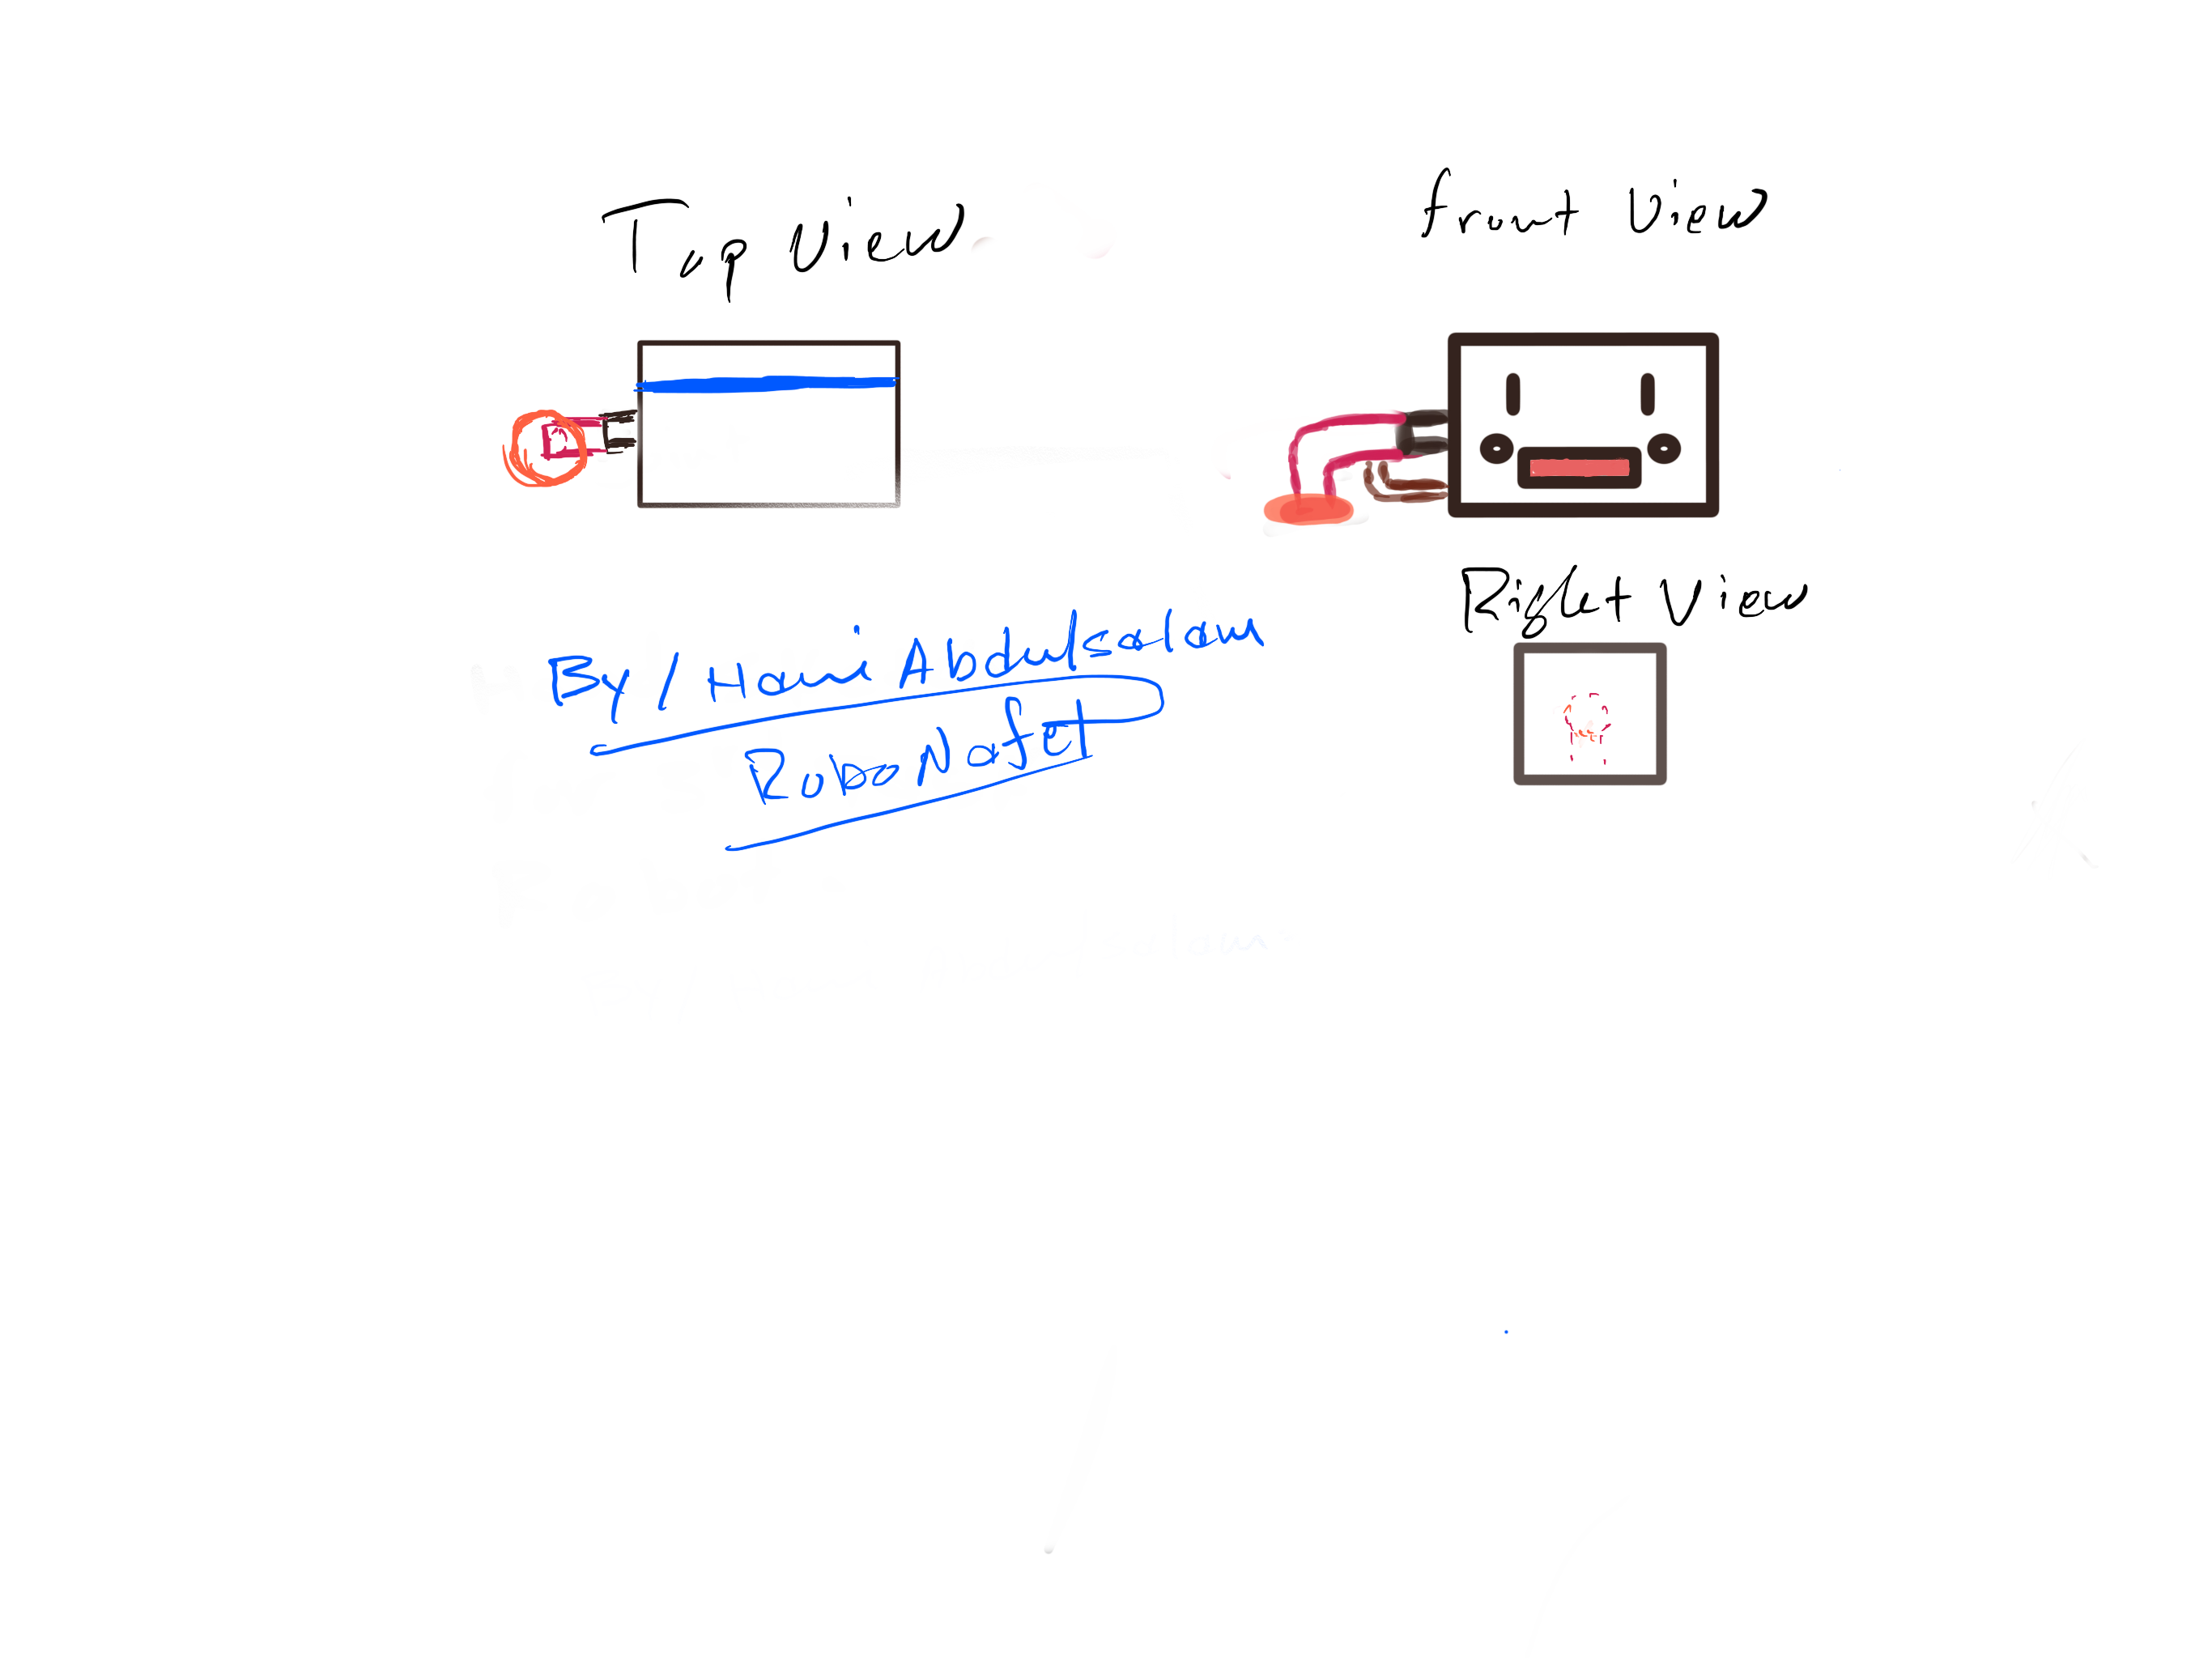 Top View
front View
Right View
By / Hani Abdulsalam
Robo Nafet